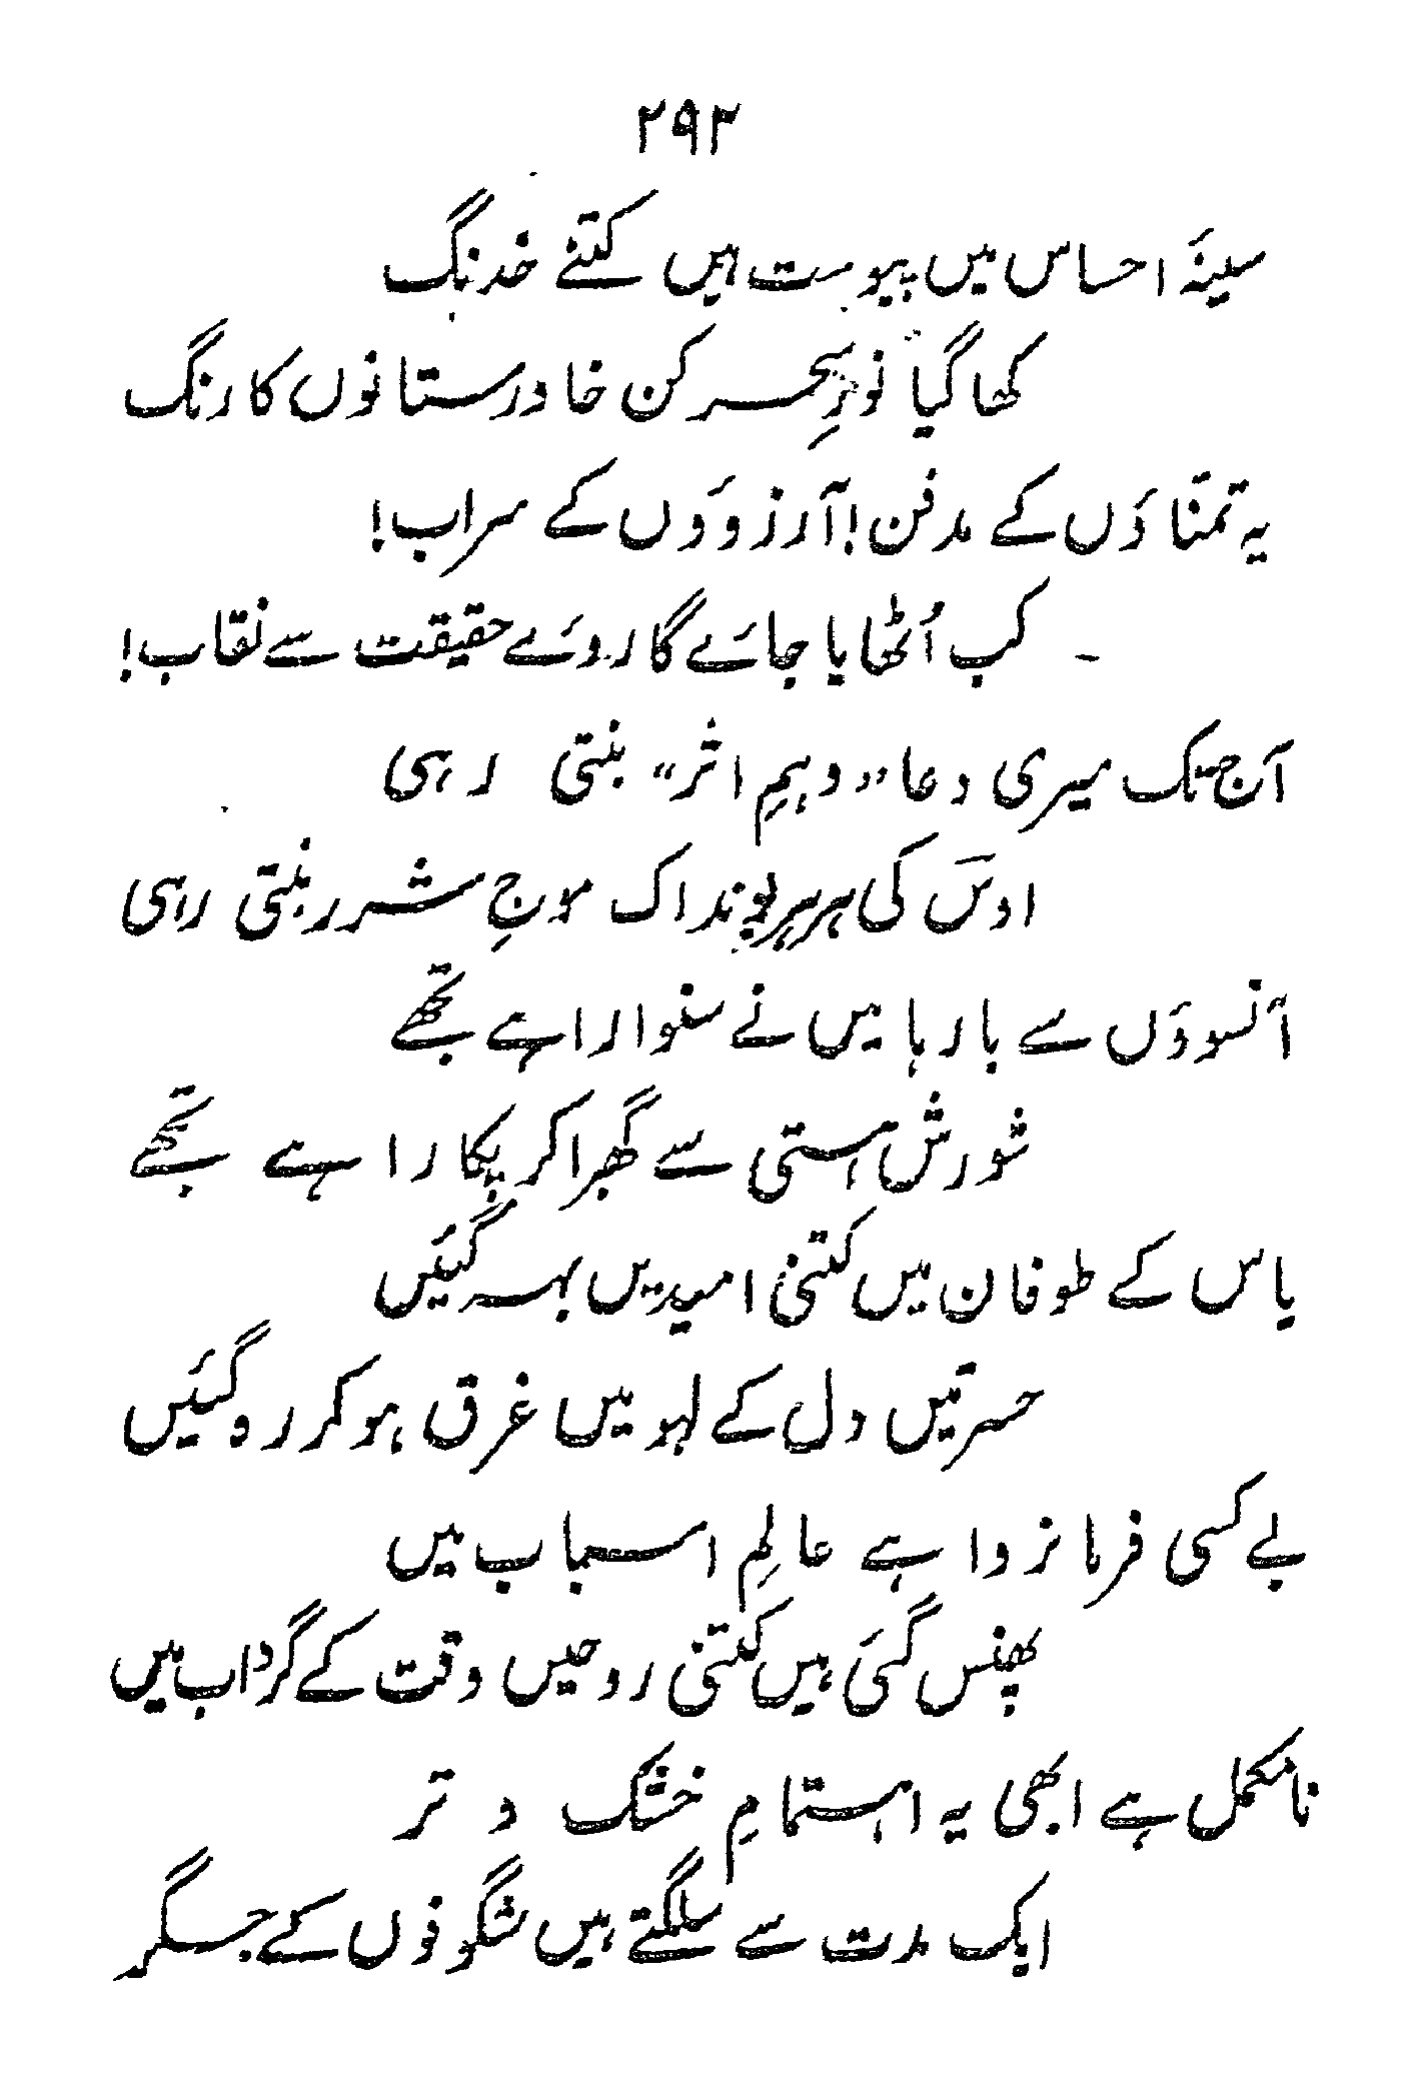 ۲۹۳
سینۂ احساس میں پیوست ہیں کتنے خدنگ
کھا گیا نورِ سحر کن خاورستانوں کا رنگ
یہ تمنّاؤں کے مدفن! آرزوؤں کے سراب!
کب اُٹھایا جائے گا روئے حقیقت سے نقاب!
آج تک میری دعا ”وہمِ اثر“ بنتی رہی
اوس کی ہر ہر بوند اک موجِ شرر بنتی رہی
آنسوؤں سے بارہا میں نے سنوارا ہے تجھے
شورش ہستی سے گھبرا کر پکارا ہے تجھے
یاس کے طوفان میں کتنی امیدیں بہہ گئیں
حسرتیں دل کے لہو میں غرق ہو کر رہ گئیں
بے کسی فرمانروا ہے عالمِ اسباب میں
پھنس گئی ہیں کتنی روحیں وقت کے گرداب میں
نامکمل ہے ابھی یہ اہتمامِ خشک و تر
ایک مدت سے سلگتے ہیں شگوفوں کے جگر